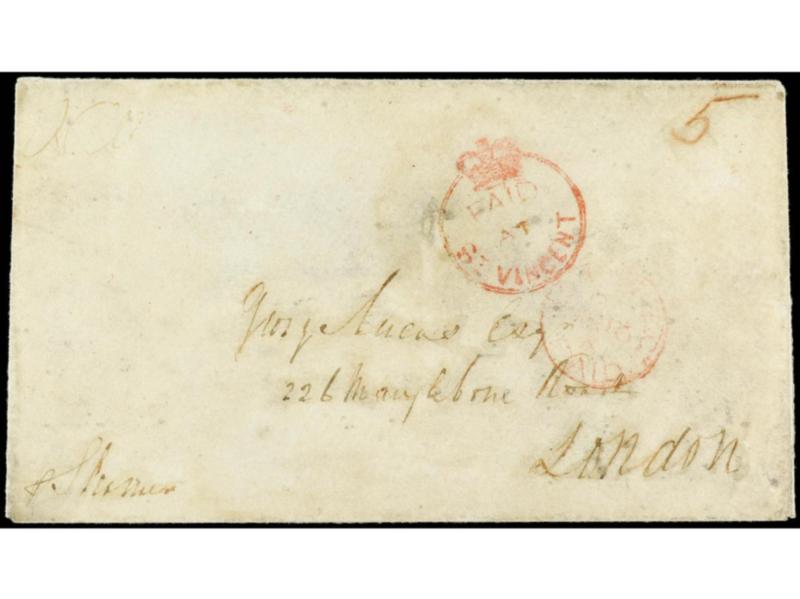 5
PAID
AT
ST VINCENT
PAID
George Lucas Esqr
226 Marylebone Road
London
p. Steamer